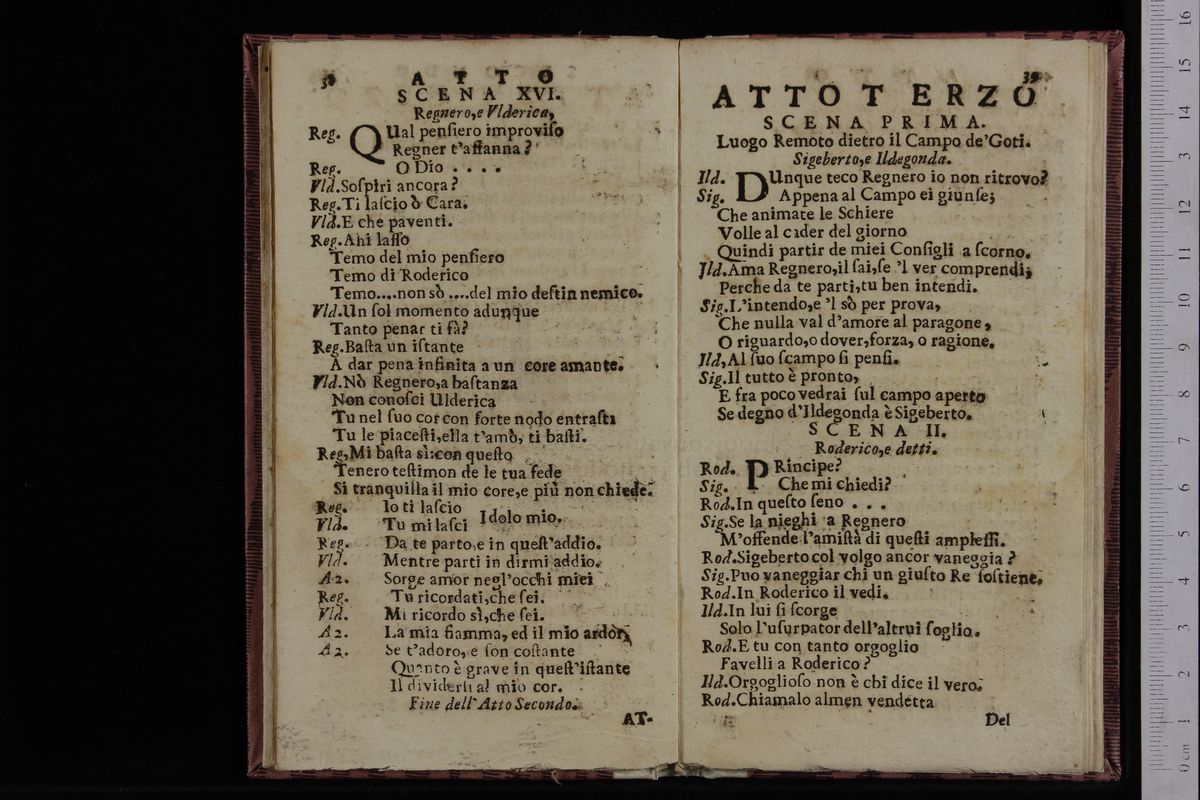 38 ATTO
SCENA XVI.
Regnero,e Vlderica,
Reg. QUal penſiero improviſo
Regner t'affanna?
Reg. O Dio . . . .
Vld.Soſpiri ancora?
Reg.Ti laſcio ò Cara.
Vld.E che paventi.
Reg.Ahi laſſo
Temo del mio penſiero
Temo di Roderico
Temo....non sò ....del mio deſtin nemico.
Vld.Un ſol momento adunque
Tanto penar ti fà?
Reg.Baſta un iſtante
A dar pena infinita a un core amante.
Vld.Nò Regnero,a baſtanza
Non conoſci Ulderica
Tu nel ſuo cor con forte nodo entraſti
Tu le piaceſti,ella t'amò, ti baſti.
Reg,Mi baſta sì:con queſto
Tenero teſtimon de le tua fede
Si tranquilla il mio core,e più non chiede.
Reg. Io ti laſcio
Vld. Tu mi laſci Idolo mio.
Reg. Da te parto,e in queſt'addio.
Vld. Mentre parti in dirmi addio.
A2. Sorge amor negl'occhi miei
Reg. Tu ricordati,che ſei.
Vld. Mi ricordo sì,che ſei.
A2. La mia fiamma, ed il mio ardor;
A2. Se t'adoro, e ſon coſtante
Quanto è grave in queſt'iſtante
Il dividerſi al mio cor.
Fine dell'Atto Secondo.
AT-
39
ATTO TERZO
SCENA PRIMA.
Luogo Remoto dietro il Campo de'Goti.
Sigeberto,e Ildegonda.
Ild. DUnque teco Regnero io non ritrovo?
Sig. Appena al Campo ei giunſe;
Che animate le Schiere
Volle al cader del giorno
Quindi partir de miei Conſigli a ſcorno.
Ild.Ama Regnero,il ſai,ſe 'l ver comprendi;
Perche da te parti,tu ben intendi.
Sig.L'intendo,e 'l sò per prova,
Che nulla val d'amore al paragone,
O riguardo,o dover,forza, o ragione.
Ild,Al ſuo ſcampo ſi penſi.
Sig.Il tutto è pronto,
E fra poco vedrai ſul campo aperto
Se degno d'Ildegonda è Sigeberto.
SCENA II.
Roderico,e detti.
Rod. PRincipe?
Sig. Che mi chiedi?
Rod.In queſto ſeno . . .
Sig.Se la nieghi a Regnero
M'offende l'amiſtà di queſti ampleſſi.
Rod.Sigeberto col volgo ancor vaneggia?
Sig.Puo vaneggiar chi un giuſto Re ſoſtiene.
Rod.In Roderico il vedi.
Ild.In lui ſi ſcorge
Solo l'uſurpator dell'altrui ſoglio.
Rod.E tu con tanto orgoglio
Favelli a Roderico?
Ild.Orgoglioſo non è chi dice il vero.
Rod.Chiamalo almen vendetta
Del